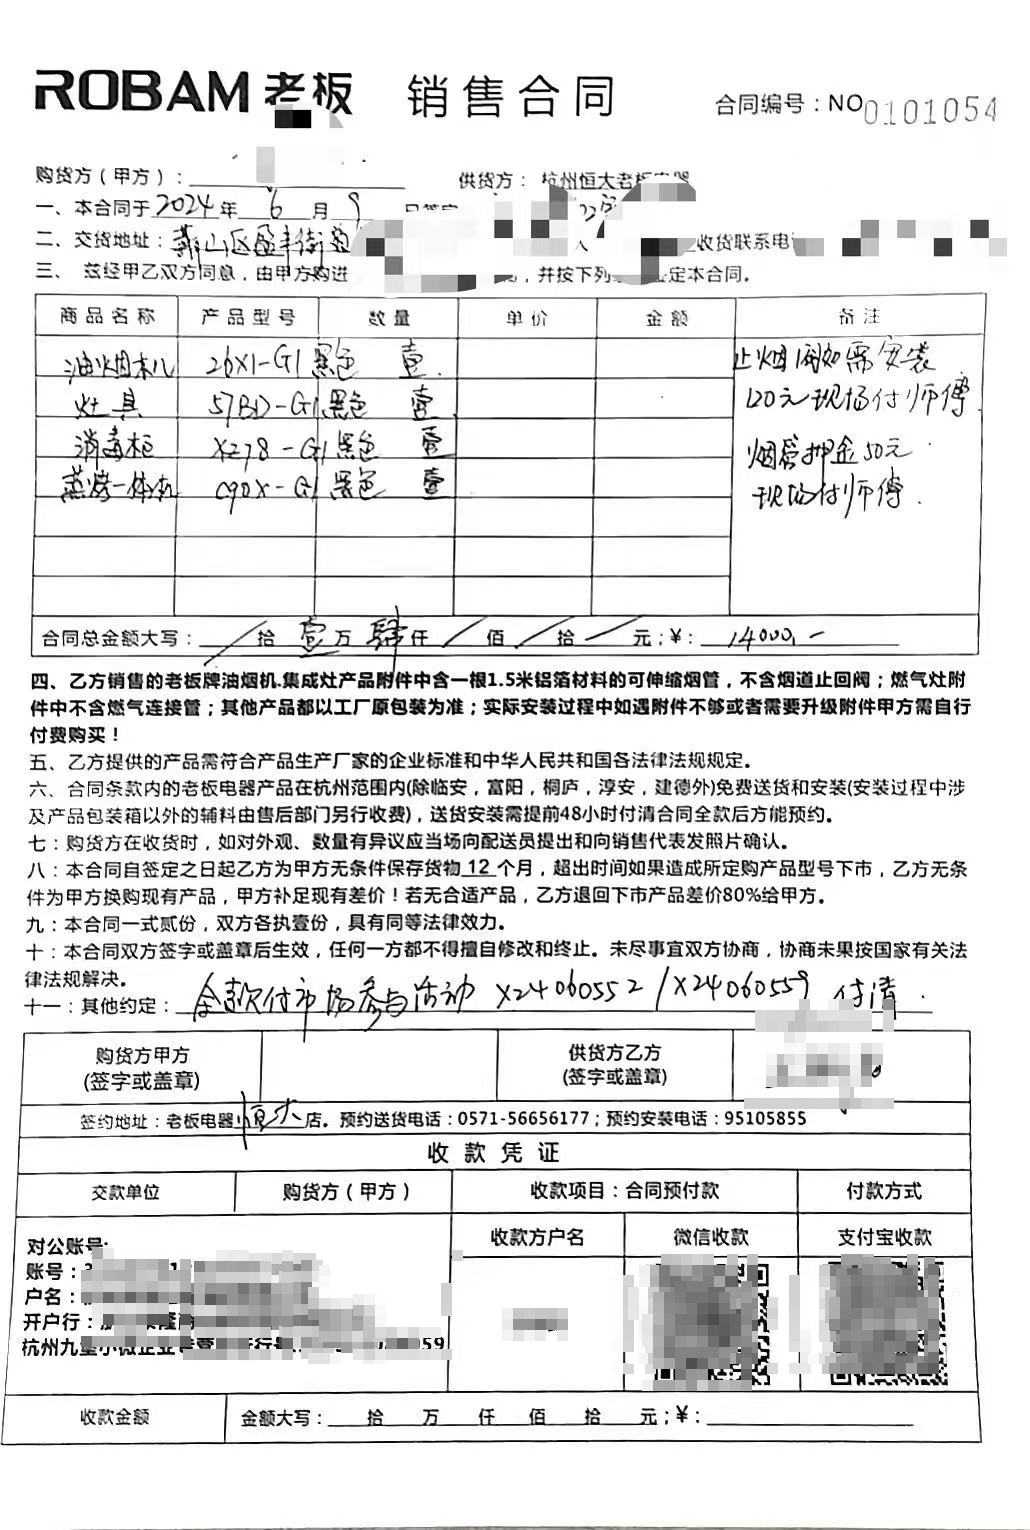 ROBAM 老板 销售合同 合同编号：NO 0101054
购货方（甲方）： 供货方： 杭州恒大老板电器
一、本合同于 2024 年 6 月 9
二、交货地址：萧山区盈丰街道 收货联系电
三、 兹经甲乙双方同意，由甲方购进 ，并按下列 签定本合同。
商品名称 产品型号 数量 单价 金额 备注
油烟机 26X1-G1 黑色 壹 止烟阀如需安装
灶具 57BD-G1 黑色 壹 120元现场付师傅
消毒柜 XZ78-G1 黑色 壹 烟管押金50元
蒸烤一体机 C90X-G1 黑色 壹 现场付师傅.
合同总金额大写： / 拾 壹 万 肆 仟 / 佰 / 拾 / 元；¥： 14000.-
四、乙方销售的老板牌油烟机.集成灶产品附件中含一根1.5米铝箔材料的可伸缩烟管，不含烟道止回阀；燃气灶附
件中不含燃气连接管；其他产品都以工厂原包装为准；实际安装过程中如遇附件不够或者需要升级附件甲方需自行
付费购买！
五、乙方提供的产品需符合产品生产厂家的企业标准和中华人民共和国各法律法规规定。
六、合同条款内的老板电器产品在杭州范围内(除临安，富阳，桐庐，淳安，建德外)免费送货和安装(安装过程中涉
及产品包装箱以外的辅料由售后部门另行收费)，送货安装需提前48小时付清合同全款后方能预约。
七：购货方在收货时，如对外观、数量有异议应当场向配送员提出和向销售代表发照片确认。
八：本合同自签定之日起乙方为甲方无条件保存货物 12 个月，超出时间如果造成所定购产品型号下市，乙方无条
件为甲方换购现有产品，甲方补足现有差价！若无合适产品，乙方退回下市产品差价80%给甲方。
九：本合同一式贰份，双方各执壹份，具有同等法律效力。
十：本合同双方签字或盖章后生效，任何一方都不得擅自修改和终止。未尽事宜双方协商，协商未果按国家有关法
律法规解决。
十一：其他约定： 全款付市场参与活动 X24060552/X24060559 付清.
购货方甲方 供货方乙方
(签字或盖章) (签字或盖章)
签约地址：老板电器 恒大 店。预约送货电话：0571-56656177；预约安装电话：95105855
收 款 凭 证
交款单位 购货方（甲方） 收款项目：合同预付款 付款方式
对公账号: 收款方户名 微信收款 支付宝收款
账号：
户名：
开户行：
杭州九堡小微企业专营 行号 59
收款金额 金额大写： 拾 万 仟 佰 拾 元；¥：